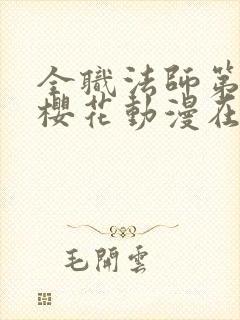 全職法師第
櫻花動漫在
毛開雲